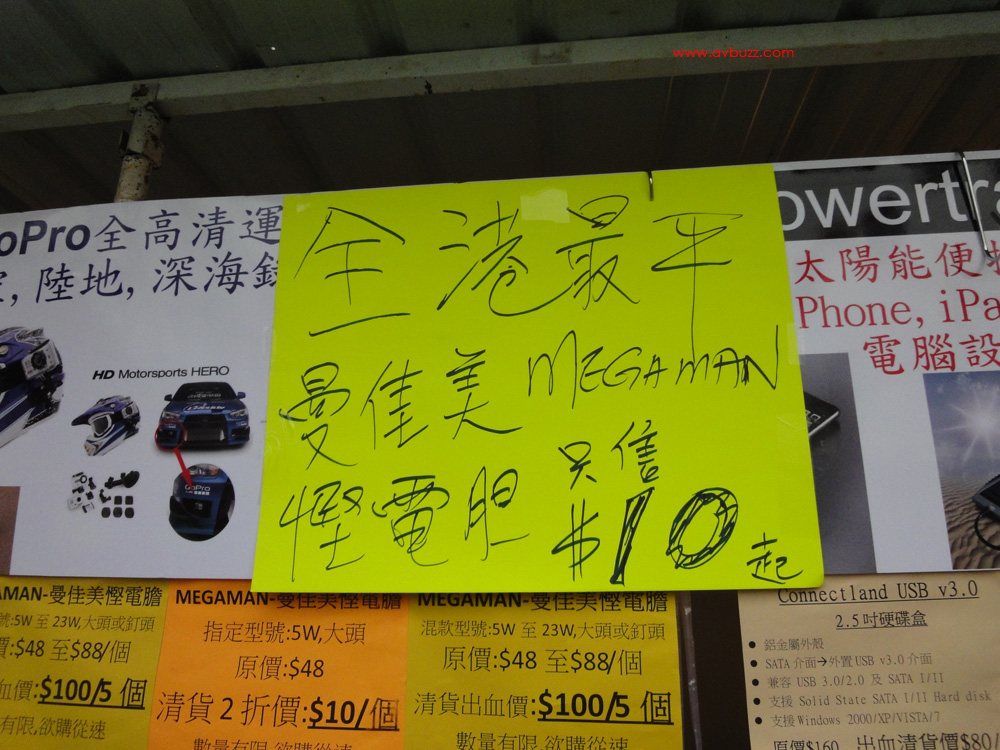 www.avbuzz.com
oPro全高清運
, 陸地, 深海錄
HD Motorsports HERO
GoPro
全港最平
曼佳美 MEGAMAN
慳電胆 只售
$10起
owertra
太陽能便
Phone, iPa
電腦設
AMAN-曼佳美慳電膽
號:5W 至 23W,大頭或釘頭
價:$48 至$88/個
血價:$100/5 個
有限,欲購從速
MEGAMAN-曼佳美慳電膽
指定型號:5W,大頭
原價:$48
清貨 2 折價:$10/個
數量有限,欲購從速
MEGAMAN-曼佳美慳電膽
混款型號:5W 至 23W,大頭或釘頭
原價:$48 至$88/個
清貨出血價:$100/5 個
數量有限,欲購從速
Connectland USB v3.0
2.5 吋硬碟盒
● 鋁金屬外殼
● SATA 介面→外置 USB v3.0 介面
● 兼容 USB 3.0/2.0 及 SATA I/II
● 支援 Solid State SATA I/II Hard disk
● 支援 Windows 2000/XP/VISTA/7
原價$160 出血清貨價$80/